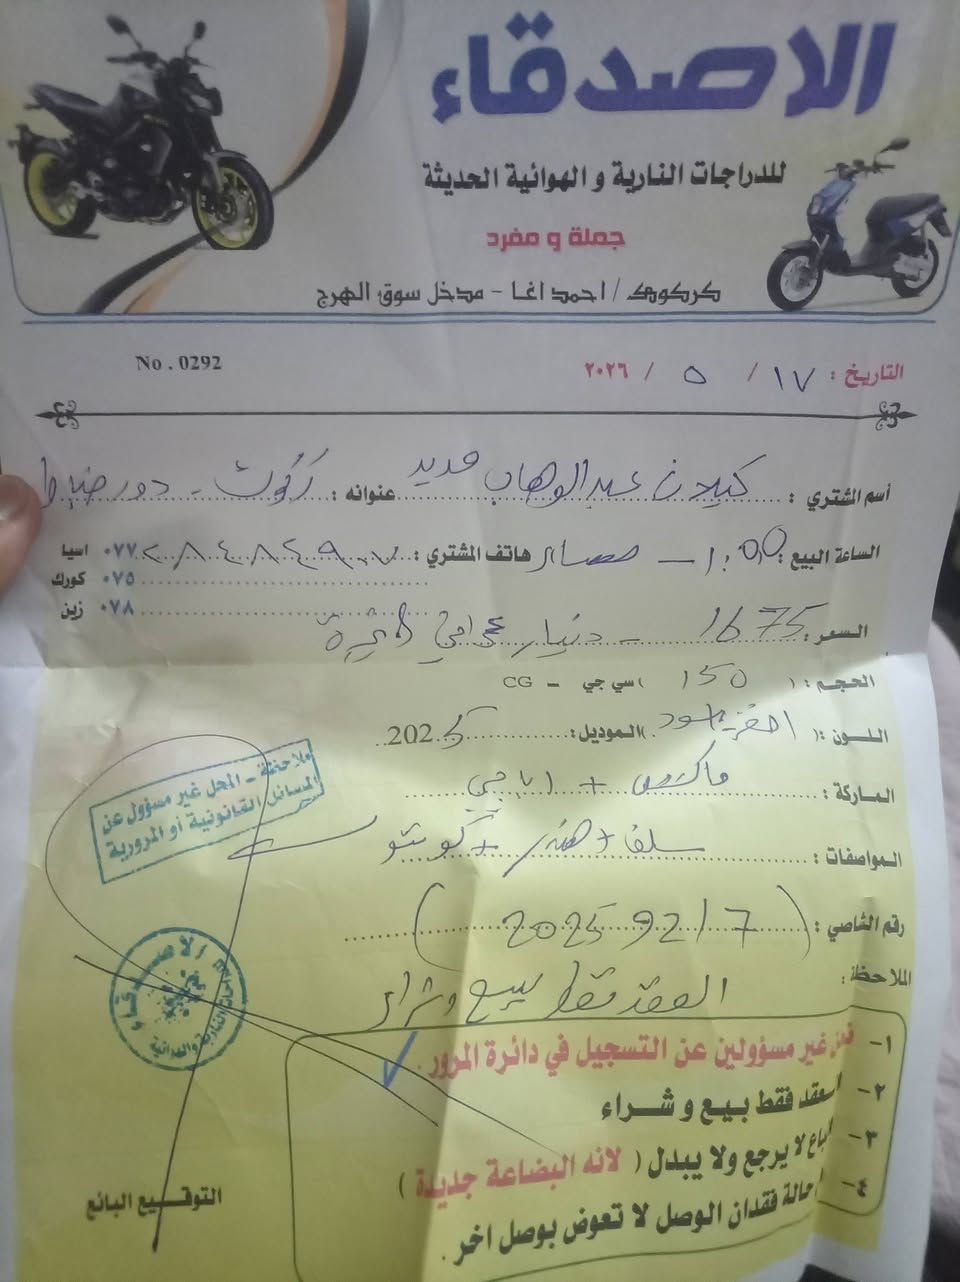 الاصدقاء
للدراجات النارية و الهوائية الحديثة
جملة و مفرد
كركوك / احمد اغا - مدخل سوق الهرج
No . 0292
التاريخ : ١٧ / ٥ / ٢٠٢٦
أسم المشتري : عبد الوهاب عنوانه :
الساعة البيع : 1:00 هاتف المشتري : ٠٧٧ اسيا
٠٧٥ كورك
٠٧٨ زين
السعر : 1675 - دينار عراقي
الحجم : ( 150 ) سي جي - CG
اللون : ( ) الموديل : 2025
الماركة : +
المواصفات : سلف + +
رقم الشاصي : ( 20259217 )
الملاحظة : العقد فقط بيع وشراء
ملاحظة - المحل غير مسؤول عن
المسائل القانونية أو المرورية
١- غير مسؤولين عن التسجيل في دائرة المرور .
٢- العقد فقط بيع و شراء
٣- لا يرجع ولا يبدل ( لانه البضاعة جديدة )
٤- حالة فقدان الوصل لا تعوض بوصل اخر .
الاصدقاء
التوقيع البائع